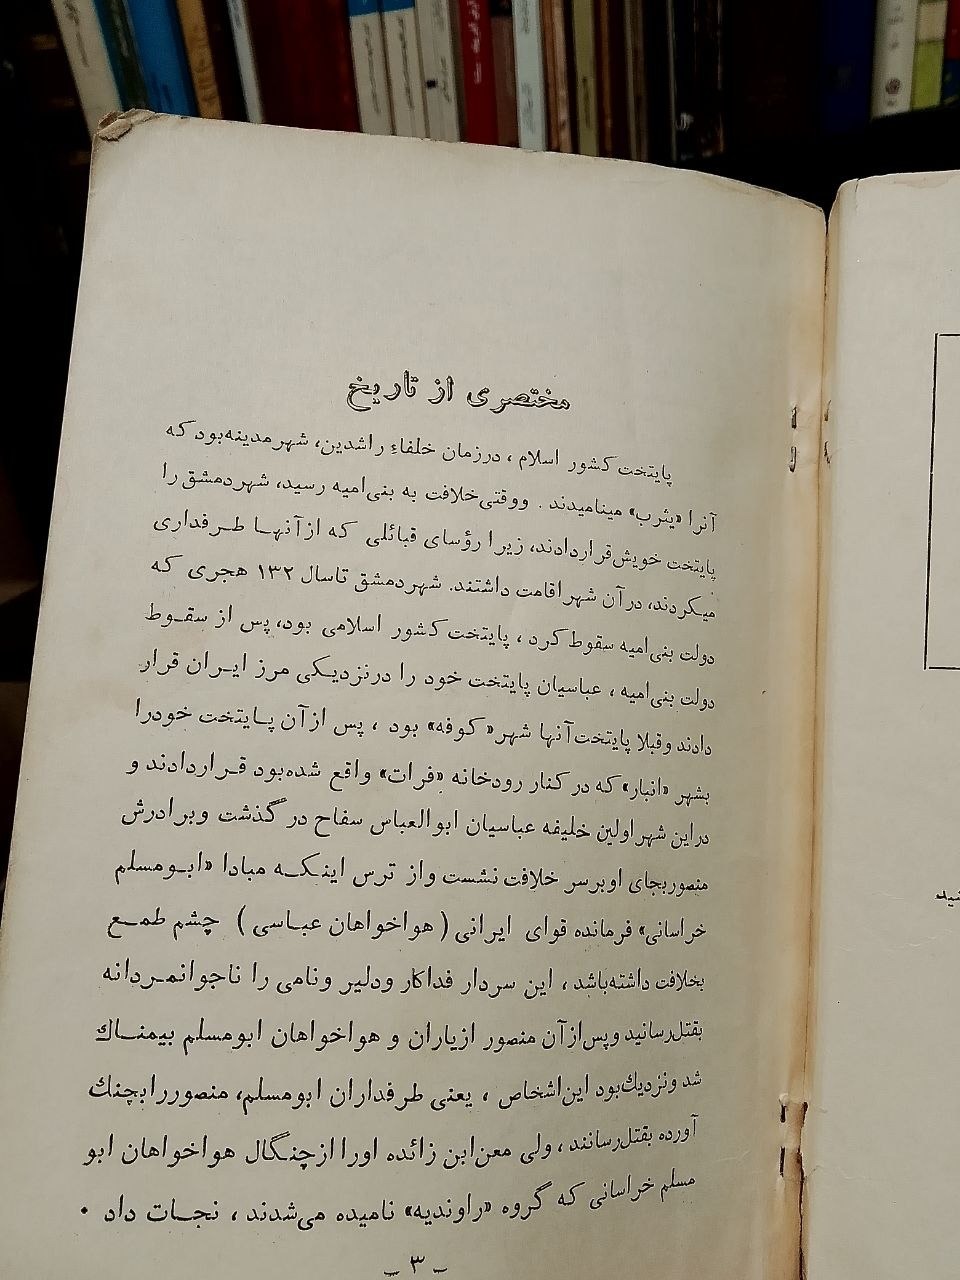 مختصری از تاریخ
پایتخت کشور اسلام ، درزمان خلفاءِ راشدین، شهرمدینه‌بود که
آنرا «یثرب» مینامیدند . ووقتی‌خلافت به بنی‌امیه رسید، شهردمشق را
پایتخت خویش‌قراردادند، زیرا رؤسای قبائلی که ازآنهـا طـرفداری
میکردند، درآن شهراقامت داشتند. شهردمشق تاسال ۱۳۲ هجری که
دولت بنی‌امیه سقوط‌کرد ، پایتخت‌کشور اسلامی بود، پس از سقـوط
دولت بنی‌امیه ، عباسیان پایتخت خود را درنزدیـکی مرز ایـران قرار
دادند وقبلا پایتخت‌آنها شهر«کوفه» بود ، پس ازآن پـایتخت خودرا
بشهر «انبار» که در کنار رودخانه «فرات» واقع شده‌بود قـراردادند و
دراین شهراولین خلیفه عباسیان ابوالعباس سفاح در گذشت وبرادرش
منصوربجای اوبرسر خلافت نشست واز ترس اینـکـه مبادا «ابـومسلم
خراسانی» فرمانده قوای ایرانی ( هواخواهان عبـاسی ) چشم طمـع
بخلافت داشته‌باشد ، این سردار فداکار ودلیر ونامی را ناجوانمـردانه
بقتل‌رسانید وپس‌ازآن منصور ازیاران و هواخواهان ابومسلم بیمنـاك
شد ونزدیك‌بود این‌اشخاص ، یعنی طرفداران ابومسلم، منصوررابچنك
آورده بقتل‌رسانند ، ولی معن‌ابن زائده اورا ازچنگال هواخواهان ابو
مسلم خراسانی که گروه «راوندیه» نامیده می‌شدند ، نجـات داد .
ـ ۳ ـ